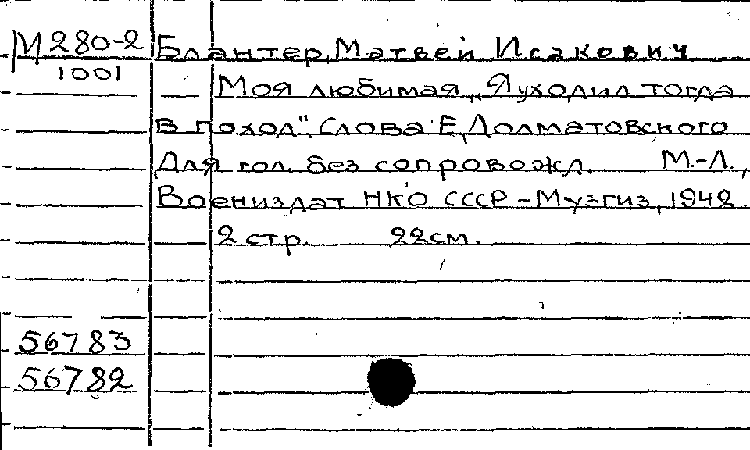 М 280-2 Блантер, Матвей Исакович
1001
— Моя любимая „Я уходил тогда
в поход". Слова Е. Долматовского
Для гол. без сопровожд. М.-Л.,
Воениздат НКО СССР - Музгиз, 1942.
2 стр. 22 см.
56783
56782